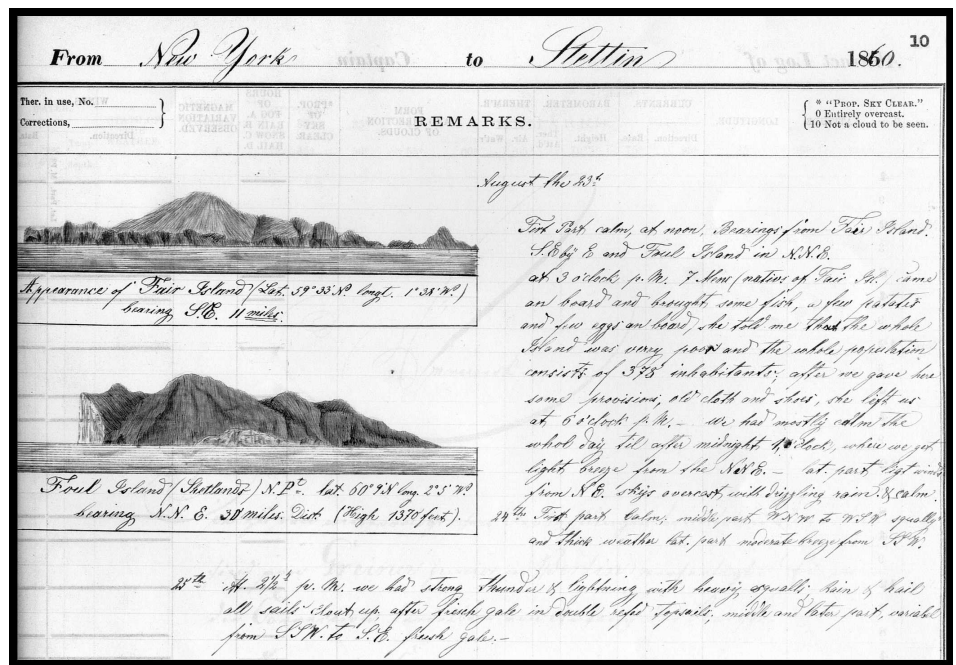 10
From New York to Stettin 1860.
Ther. in use, No.
Corrections,
REMARKS.
* "PROP. SKY CLEAR."
0 Entirely overcast.
10 Not a cloud to be seen.
August the 23d
Appearance of Fair Island (Lat. 59° 33 N. longt. 1° 34 W.)
bearing S.E. 11 miles.
Foul Island (Shetlands) N. Pt. lat. 60° 9 N long. 2° 5' W.
bearing N.N.E. 30 miles. Dist. (High 1370 feet).
First Part calm, at noon, Bearings from Fair Island.
S.E by E and Foul Island in N.N.E.
at 3 o'clock p.M. 7 Mens (natives of Fair Isl. came
an board and brought some fish, a few patates
and few eggs an board, she told me that the whole
Island was verry poor and the whole population
consists of 375 inhabitants; after we gave here
some provisions, old cloth and shoes, she left us
at 6 o'clock p.M. – we had mostly calm the
whol day til after midnight o'clock, where we got
light breeze from the N.N.E. – at. part, winds
from N.E. skys overcast, with drizzling rain & calm
24th First part Calm; middle part W.N.W to W.S.W squally
and thick weather lat. part moderate breeze from S.S.W.
25th At 2 1/2 p.M. we had strong thunder & lightning with heavy squalls; Rain & hail
all sails clout up, after fresh gale in double refed Topsails; middle and later part, variabel
from S.S.W. to S.E. fresh gale. –